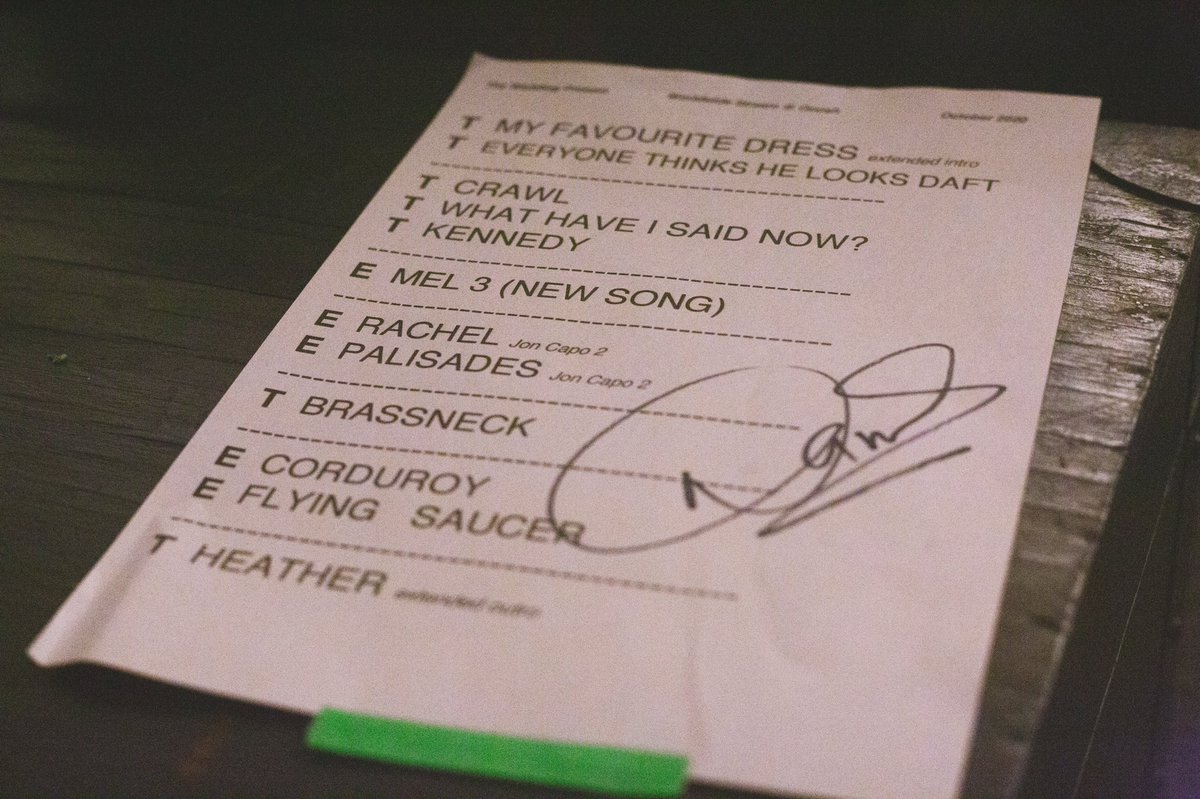 The Wedding Present October 2020
T MY FAVOURITE DRESS extended intro
T EVERYONE THINKS HE LOOKS DAFT
T CRAWL
T WHAT HAVE I SAID NOW?
T KENNEDY
E MEL 3 (NEW SONG)
E RACHEL Jon Capo 2
E PALISADES Jon Capo 2
T BRASSNECK
E CORDUROY
E FLYING SAUCER
T HEATHER extended outro